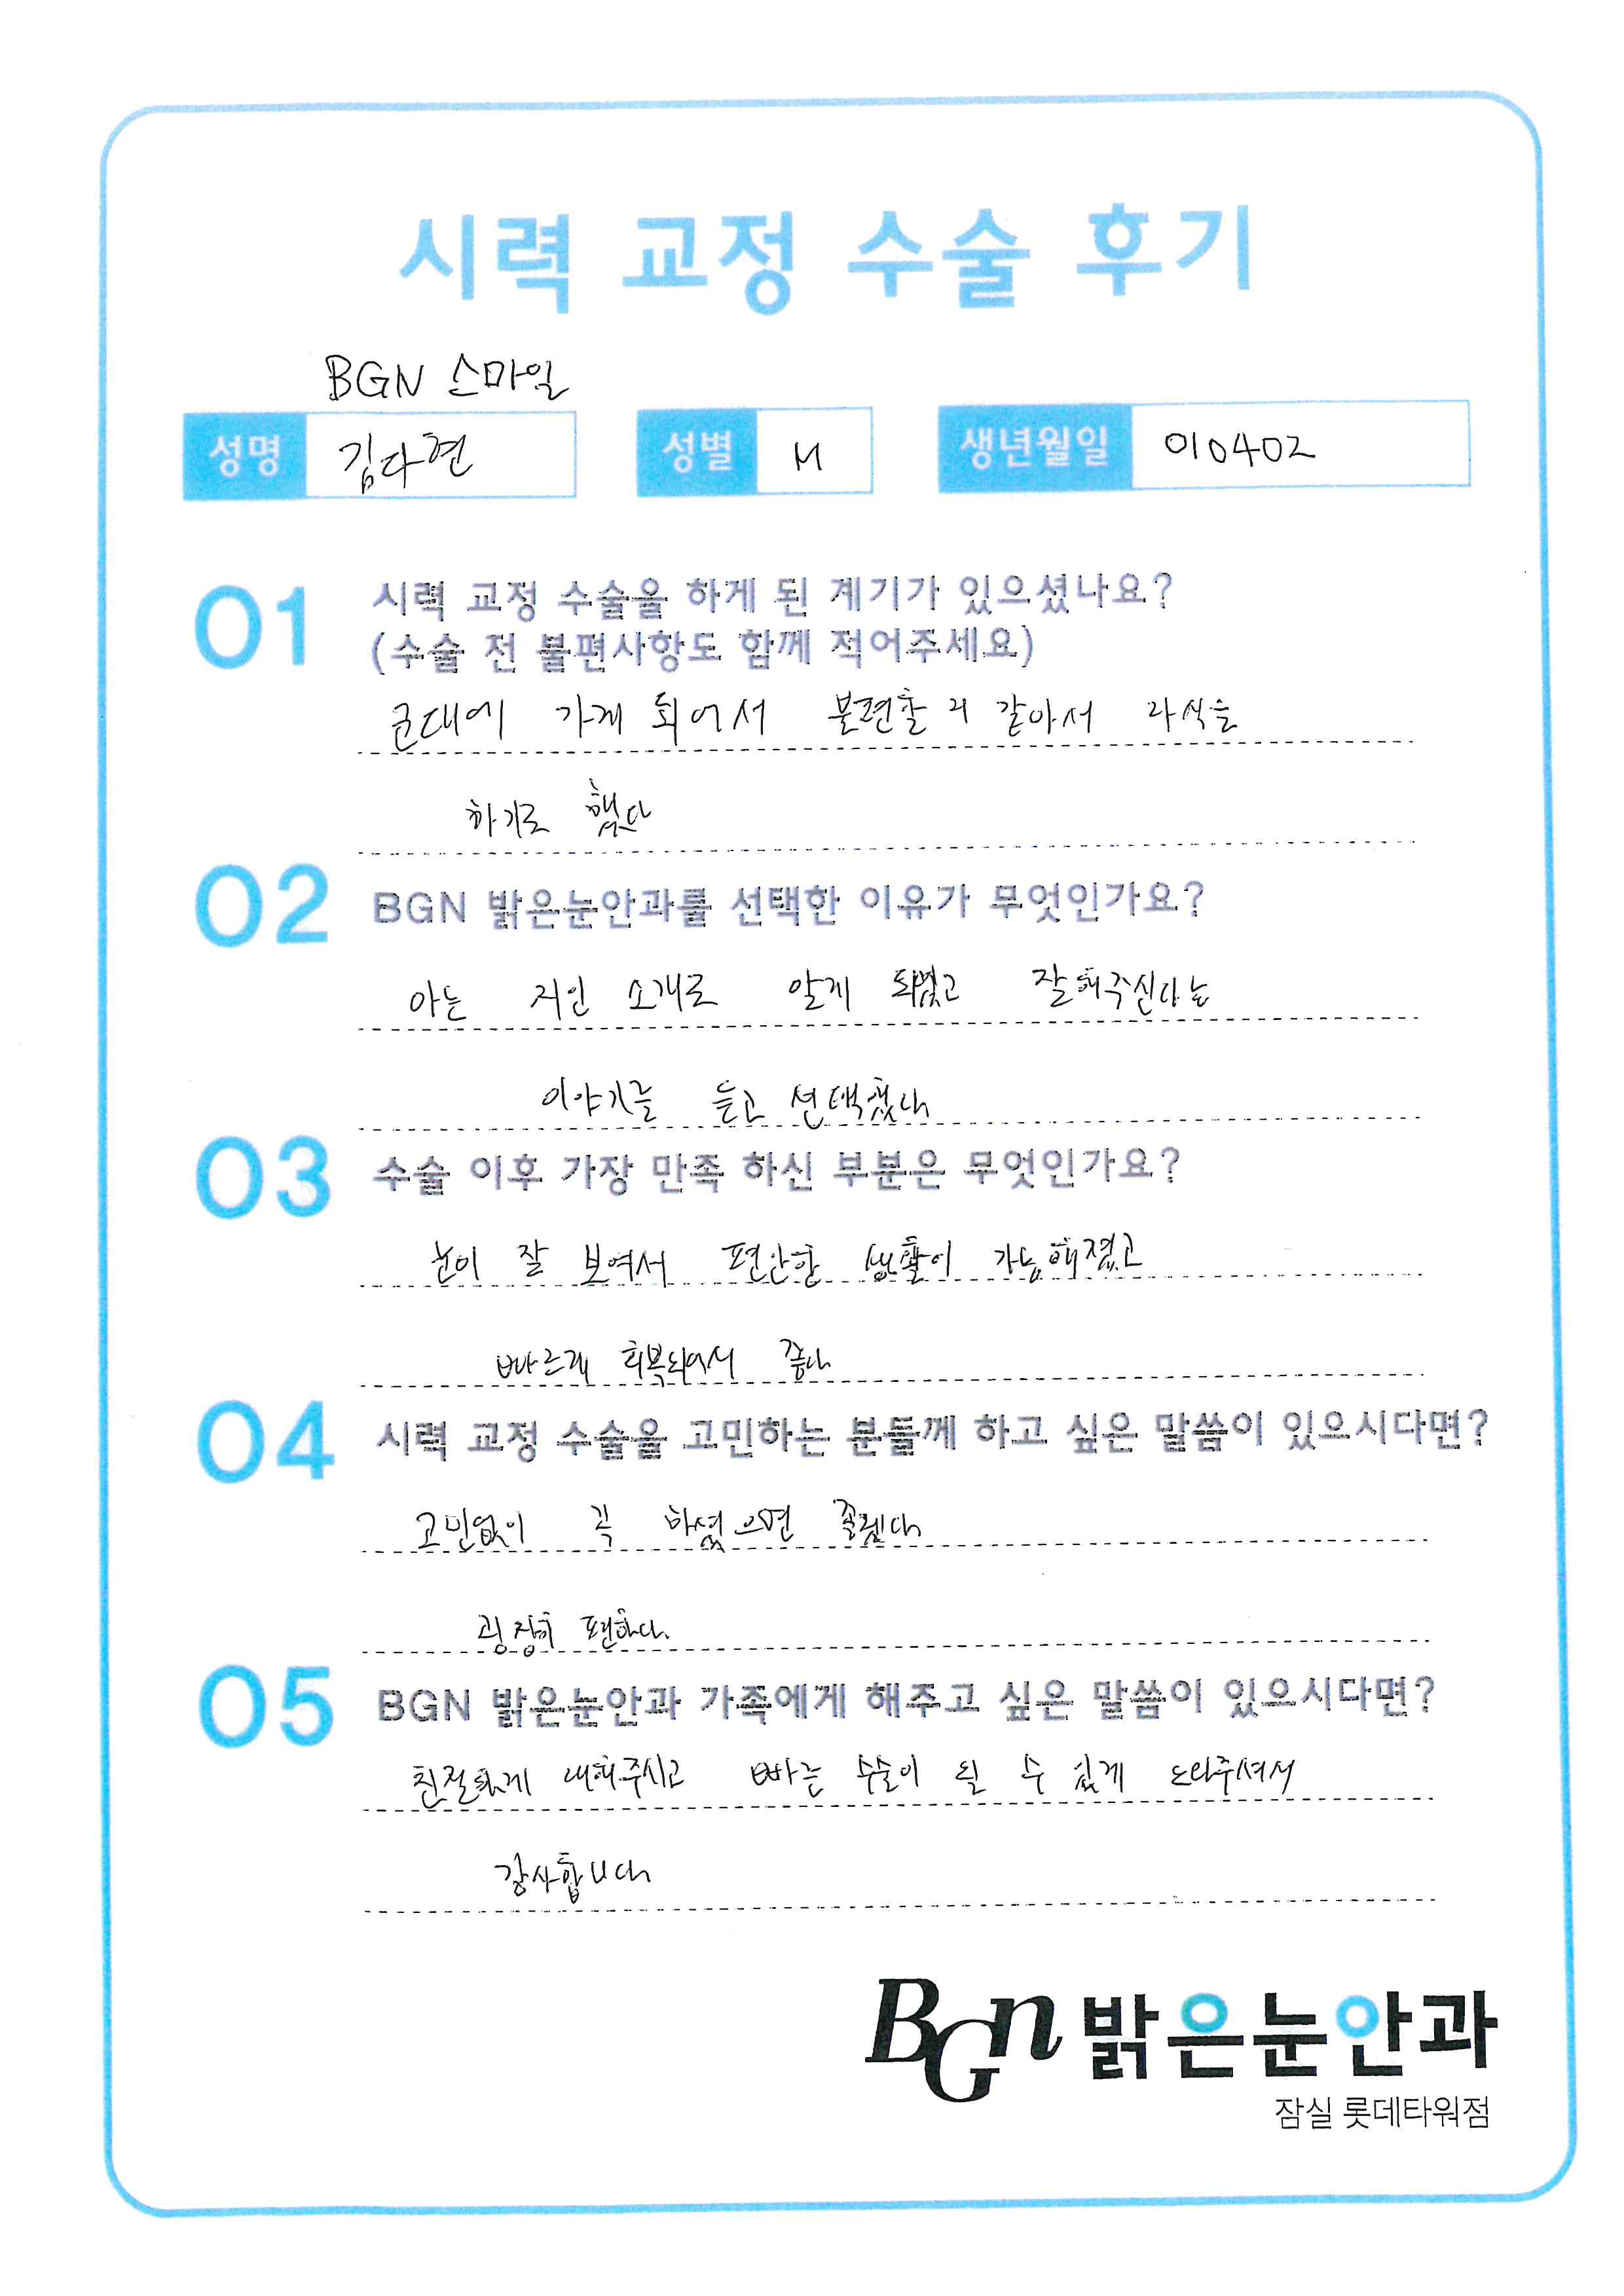 시력 교정 수술 후기
BGN 스마일
성명 김다현 성별 M 생년월일 010402
01 시력 교정 수술을 하게 된 계기가 있으셨나요?
(수술 전 불편사항도 함께 적어주세요)
군대에 가게 되어서 불편할 거 같아서 라식을
하기로 했다
02 BGN 밝은눈안과를 선택한 이유가 무엇인가요?
아는 지인 소개로 알게 되었고 잘해주신다는
이야기를 듣고 선택했다
03 수술 이후 가장 만족 하신 부분은 무엇인가요?
눈이 잘 보여서 편안한 생활이 가능해졌고
빠르게 회복되어서 좋다
04 시력 교정 수술을 고민하는 분들께 하고 싶은 말씀이 있으시다면?
고민없이 꼭 하셨으면 좋겠다
굉장히 편하다.
05 BGN 밝은눈안과 가족에게 해주고 싶은 말씀이 있으시다면?
친절하게 대해주시고 빠른 수술이 될 수 있게 도와주셔서
감사합니다
BGn 밝은눈안과
잠실 롯데타워점